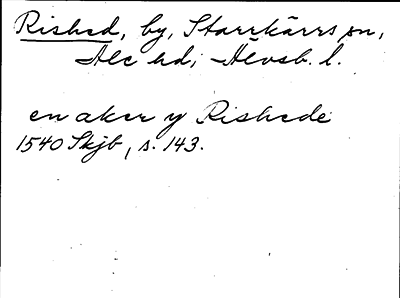 Rished, by, Starrkärrs sn,
Ale hd, Älvsb. l.
en aker y Rishede
1540 Skjb, s. 143.